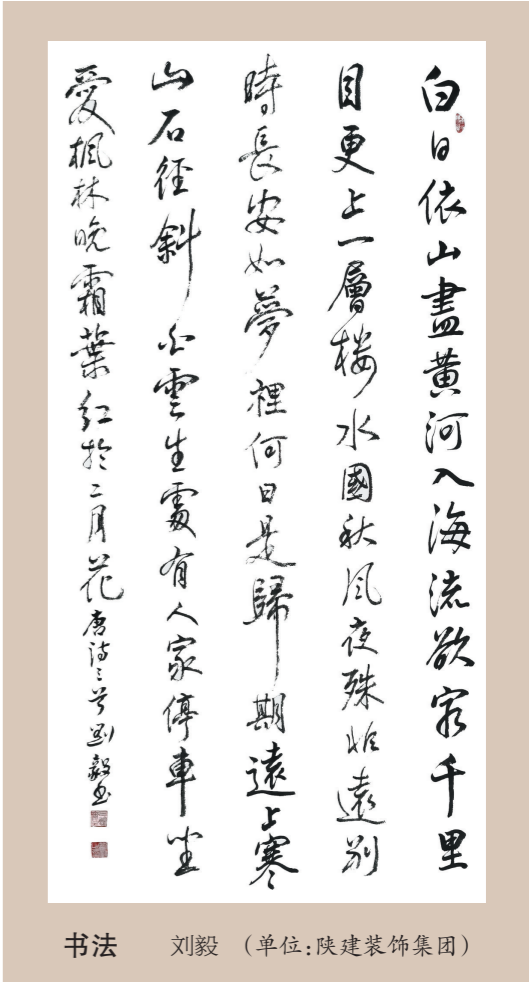 白日依山盡黄河入海流欲窮千里
目更上一層楼水國秋风夜殊非遠别
時長安如夢裡何日是歸期遠上寒
山石徑斜白雲生處有人家停車坐
愛楓林晚霜葉红於二月花唐诗三首劉毅书
书法 刘毅 （单位:陕建装饰集团）